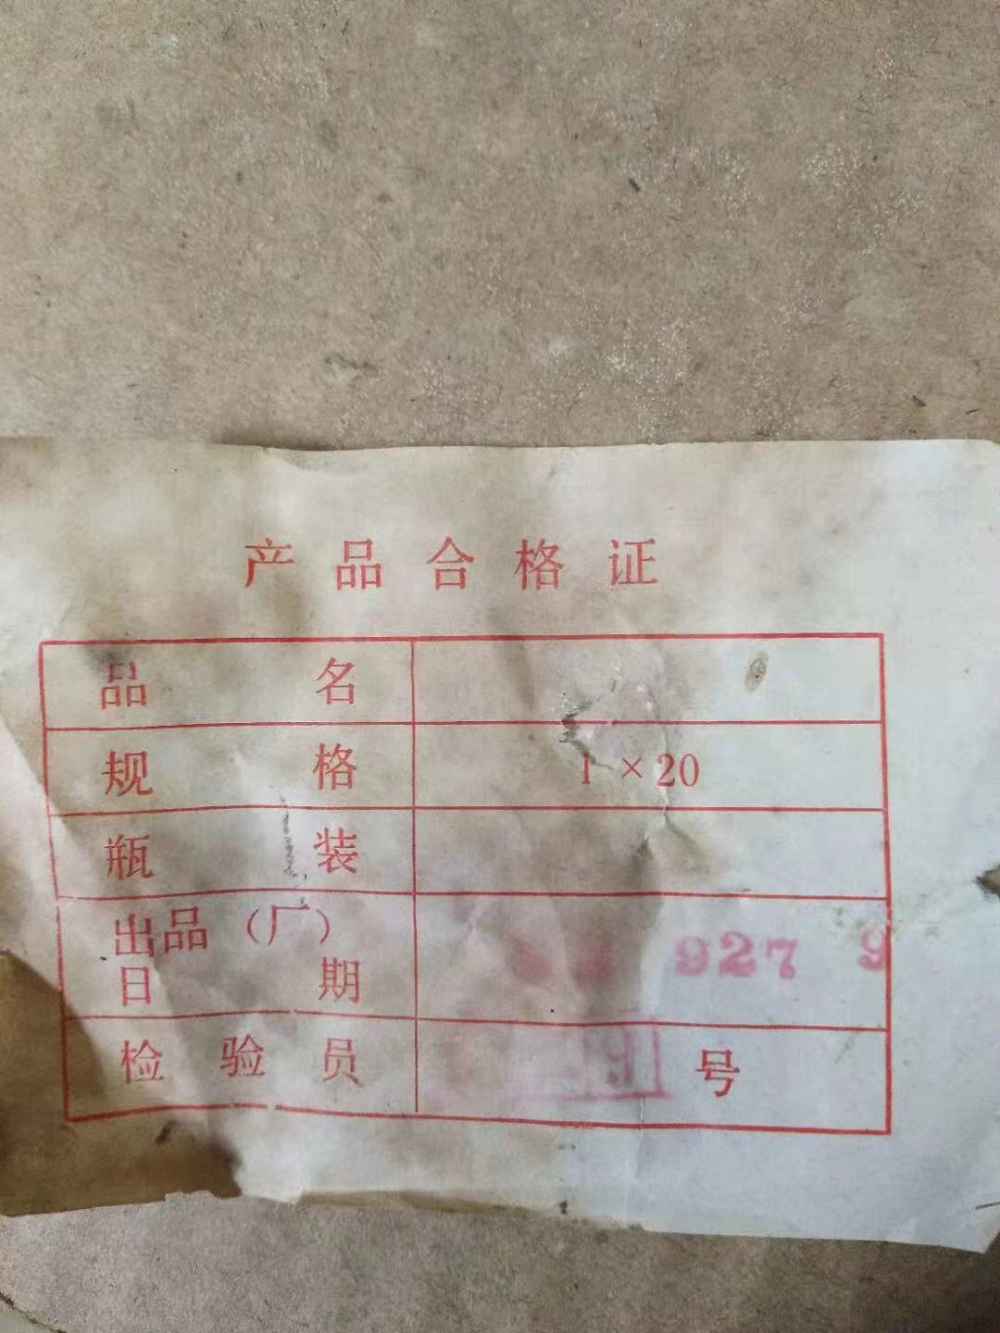 产品合格证
品名
规格 1×20
瓶装
出品（厂） 927 9
日期
检验员 9 号